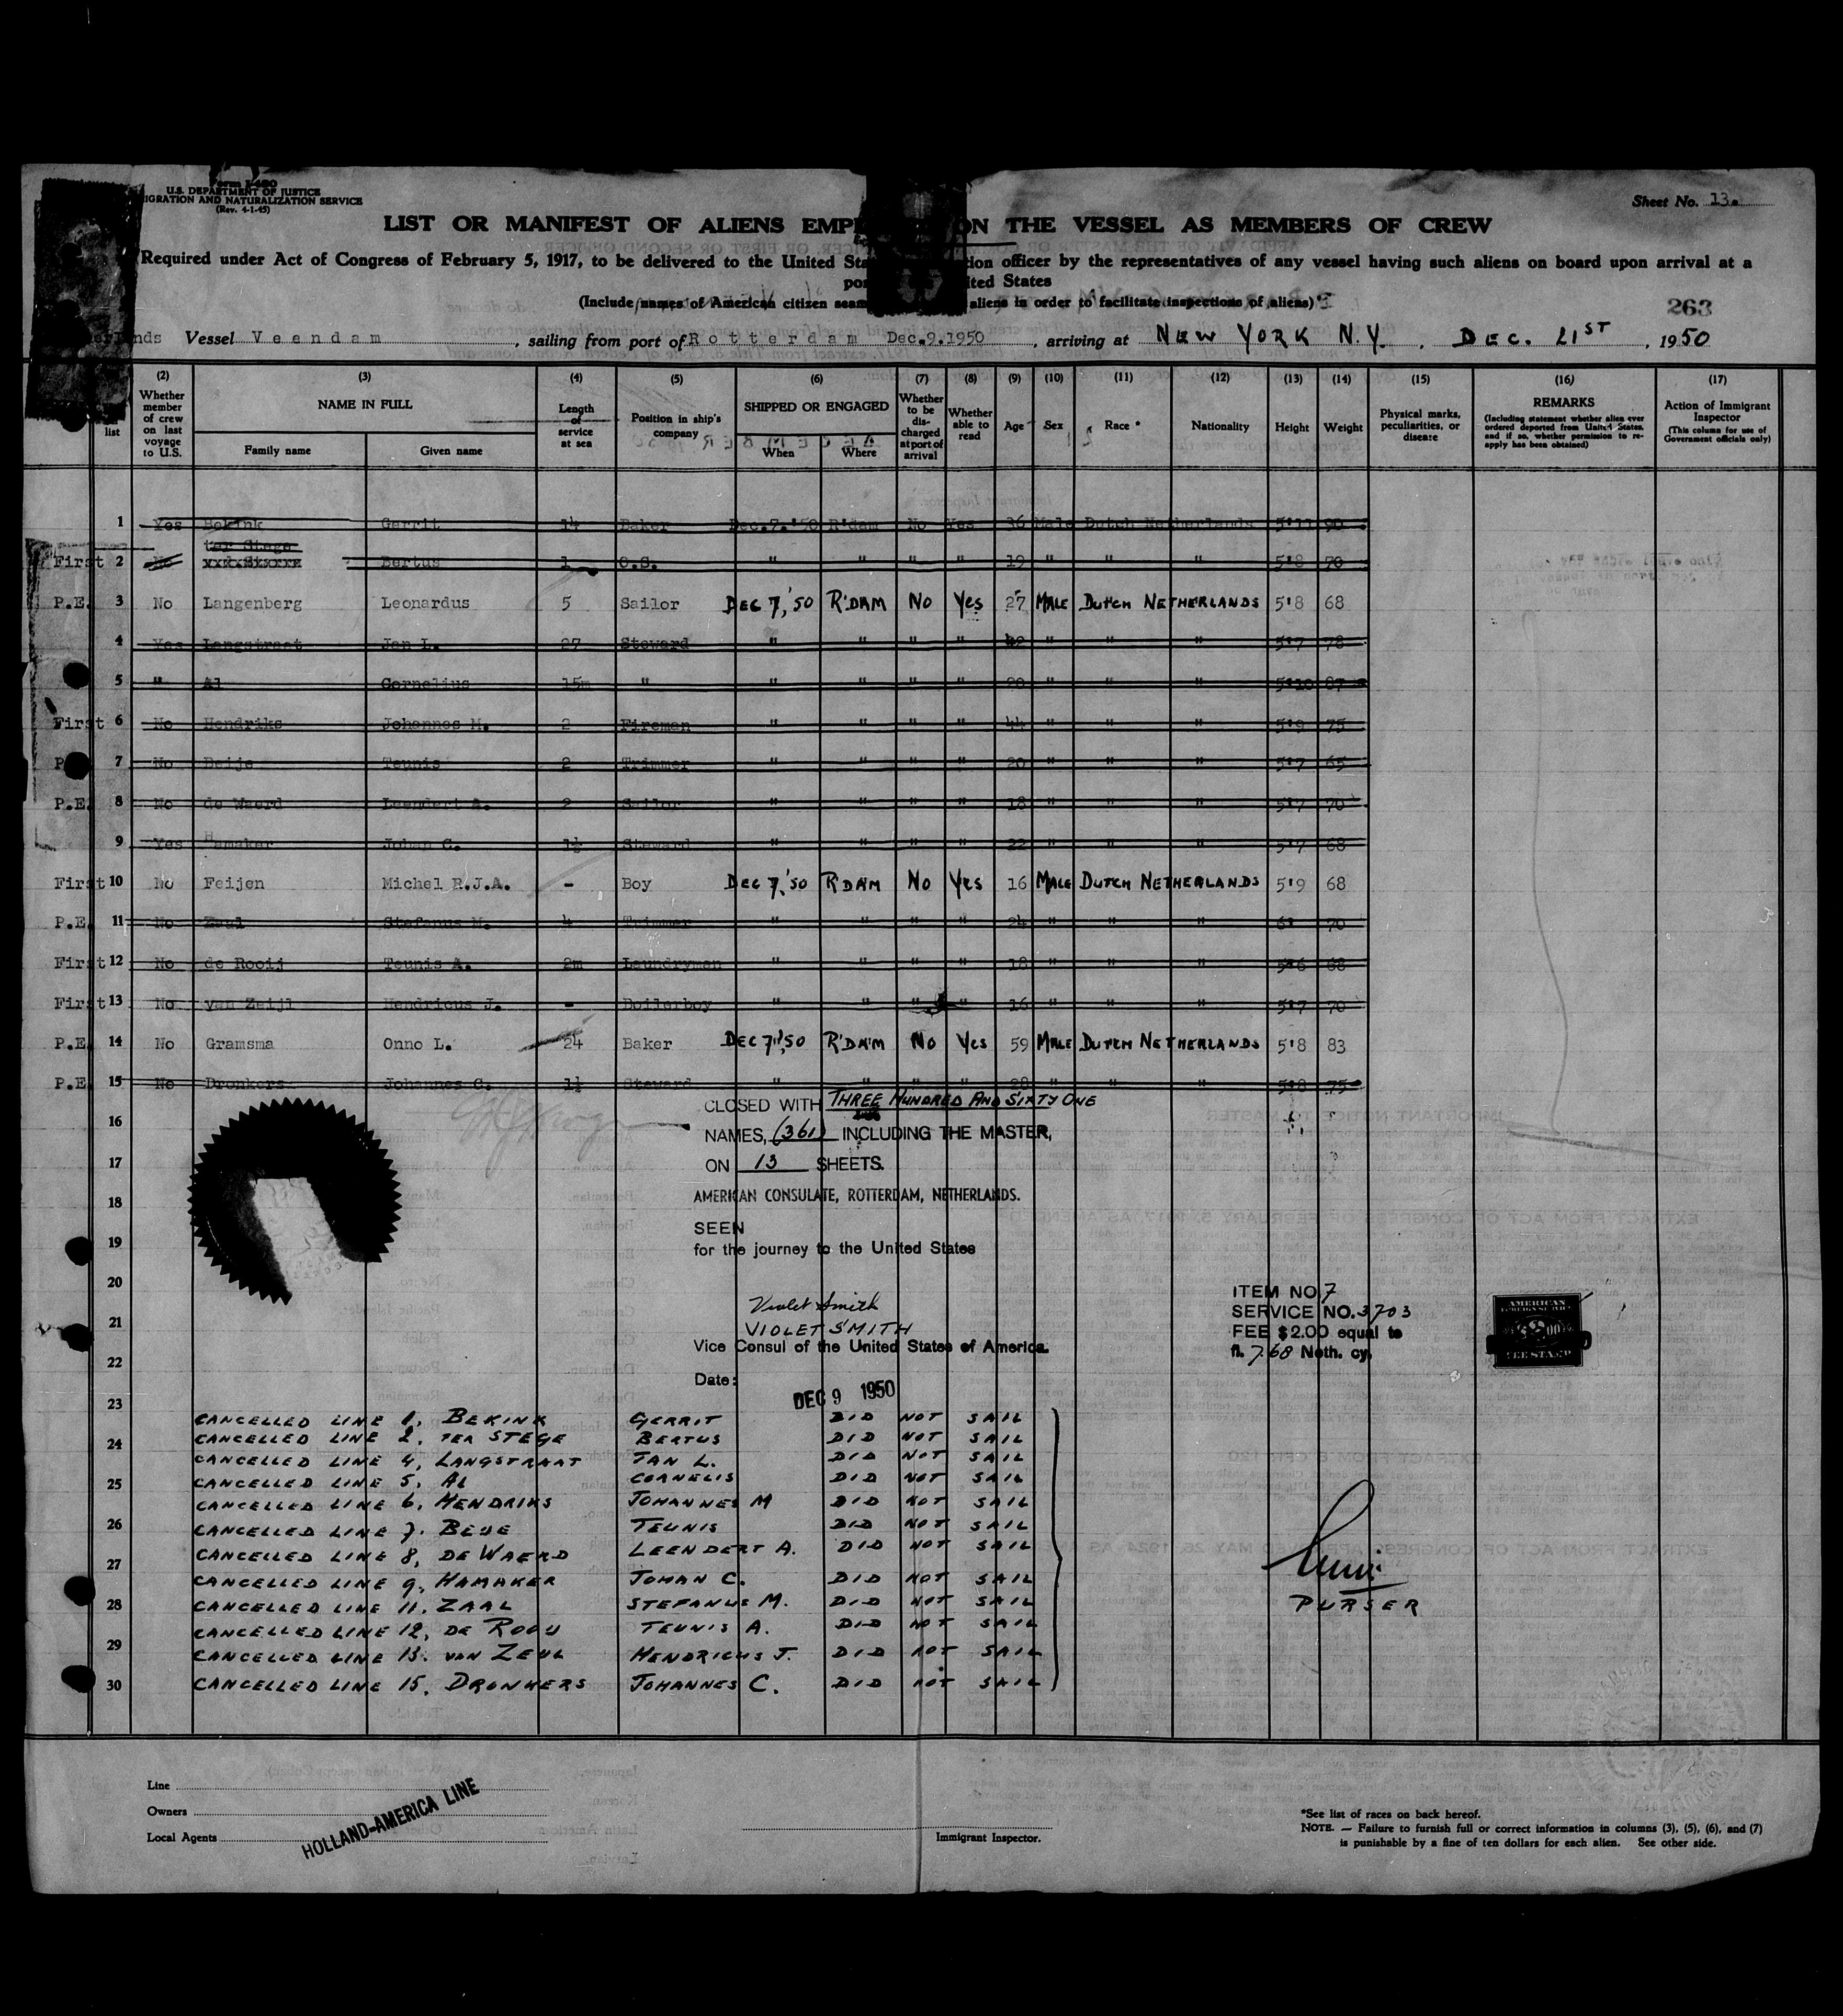 Form I-480
U.S. DEPARTMENT OF JUSTICE
IGRATION AND NATURALIZATION SERVICE
(Rev. 4-1-45)
Sheet No. 13.
LIST OR MANIFEST OF ALIENS EMP ON THE VESSEL AS MEMBERS OF CREW
Required under Act of Congress of February 5, 1917, to be delivered to the United Sta tion officer by the representatives of any vessel having such aliens on board upon arrival at a
po ited States
(Include names of American citizen seam aliens in order to facilitate inspections of aliens)
263
erlands Vessel Veendam, sailing from port of Rotterdam Dec.9.1950, arriving at NEW YORK N.Y., DEC. 21ST, 1950
(2) (3) (4) (5) (6) (7) (8) (9) (10) (11) (12) (13) (14) (15) (16) (17)
list
Whether member of crew on last voyage to U.S.
NAME IN FULL
Family name Given name
Length of service at sea
Position in ship's company
SHIPPED OR ENGAGED
When Where
Whether to be discharged at port of arrival
Whether able to read
Age Sex Race * Nationality Height Weight
Physical marks, peculiarities, or disease
REMARKS
(Including statement whether alien ever ordered deported from United States, and if so, whether permission to reapply has been obtained)
Action of Immigrant Inspector
(This column for use of Government officials only)
1 Yes Bekink Gerrit 14 Baker Dec.7.'50 R'dam No Yes 36 Male Dutch Netherlands 5'11 90
ter Stege
First 2 No Bertus 1 O.S. " " " " 19 " " " 5'8 70
P.E. 3 No Langenberg Leonardus 5 Sailor DEC 7,'50 R'DAM No Yes 27 MALE DUTCH NETHERLANDS 5'8 68
4 Yes Langstraat Jan L. 27 Steward " " " " 42 " " " 5'7 78
5 " Al Cornelius 15m " " " " " 20 " " " 5'10 87
First 6 No Hendriks Johannes M. 2 Fireman " " " " 44 " " " 5'9 75
P 7 No Beije Teunis 2 Trimmer " " " " 20 " " " 5'7 65
P.E. 8 No de Waerd Leendert A. 2 Sailor " " " " 18 " " " 5'7 70
9 Yes Hamaker Johan C. 1½ Steward " " " " 22 " " " 5'7 68
First 10 No Feijen Michel R.J.A. - Boy DEC 7,'50 R'DAM No Yes 16 MALE DUTCH NETHERLANDS 5'9 68
P.E. 11 No Zaal Stefanus M. 4 Trimmer " " " " 24 " " " 6' 70
First 12 No de Rooij Teunis A. 2m Laundryman " " " " 18 " " " 5'6 68
First 13 No van Zeijl Hendricus J. - Boilerboy " " " " 16 " " " 5'7 70
P.E. 14 No Gramsma Onno L. 24 Baker DEC 7,'50 R'DAM No Yes 59 MALE DUTCH NETHERLANDS 5'8 83
P.E. 15 No Dronkers Johannes C. 1½ Steward " " " " 28 " " " 5'8 75
16
17
18
19
20
21
22
23
24
25
26
27
28
29
30
CLOSED WITH THREE HUNDRED AND SIXTY ONE
NAMES, (361) INCLUDING THE MASTER,
ON 13 SHEETS.
AMERICAN CONSULATE, ROTTERDAM, NETHERLANDS.
SEEN
for the journey to the United States
Violet Smith
VIOLET SMITH
Vice Consul of the United States of America.
Date:
DEC 9 1950
ITEM NO. 7
SERVICE NO. 3703
FEE $2.00 equal to
fl. 7.68 Neth. cy.
AMERICAN
FOREIGN SERVICE
FEE STAMP
CANCELLED LINE 1, BEKINK GERRIT DID NOT SAIL
CANCELLED LINE 2. TER STEGE BERTUS DID NOT SAIL
CANCELLED LINE 4, LANGSTRAAT JAN L. DID NOT SAIL
CANCELLED LINE 5, AL CORNELIS DID NOT SAIL
CANCELLED LINE 6, HENDRIKS JOHANNES M DID NOT SAIL
CANCELLED LINE 7. BEIJE TEUNIS DID NOT SAIL
CANCELLED LINE 8, DE WAERD LEENDERT A. DID NOT SAIL
CANCELLED LINE 9, HAMAKER JOHAN C. DID NOT SAIL
CANCELLED LINE 11. ZAAL STEFANUS M. DID NOT SAIL
CANCELLED LINE 12, DE ROOIJ TEUNIS A. DID NOT SAIL
CANCELLED LINE 13. VAN ZEIJL HENDRICUS J. DID NOT SAIL
CANCELLED LINE 15. DRONKERS JOHANNES C. DID NOT SAIL
PURSER
Line
Owners
Local Agents
HOLLAND-AMERICA LINE
Immigrant Inspector.
*See list of races on back hereof.
NOTE. — Failure to furnish full or correct information in columns (3), (5), (6), and (7)
is punishable by a fine of ten dollars for each alien. See other side.